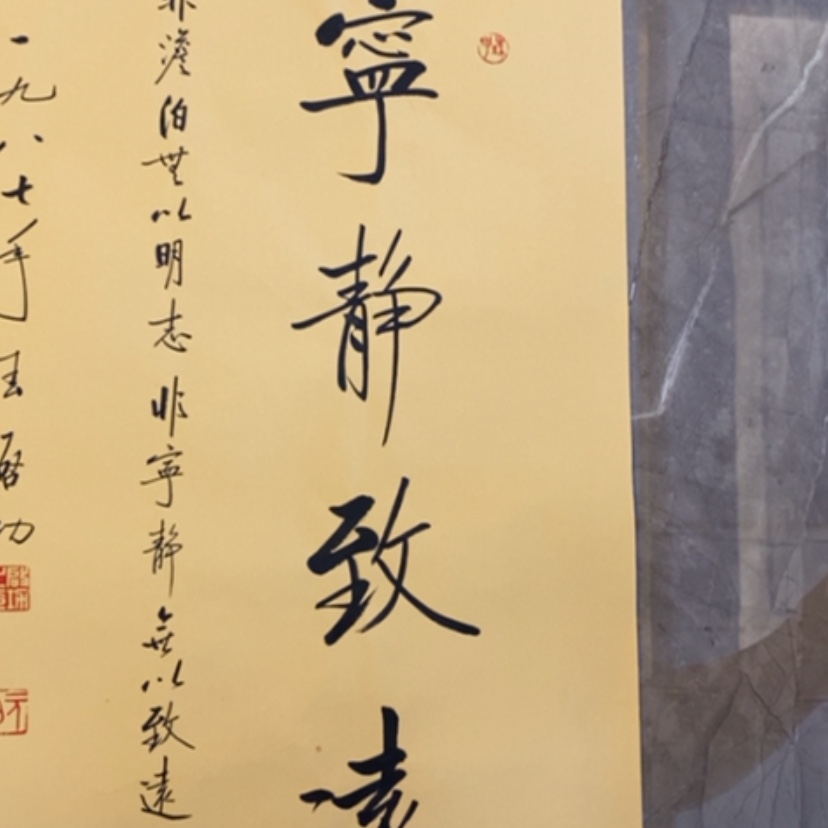 寧靜致遠
非澹泊無以明志非寧靜無以致遠
一九八七年
啓功